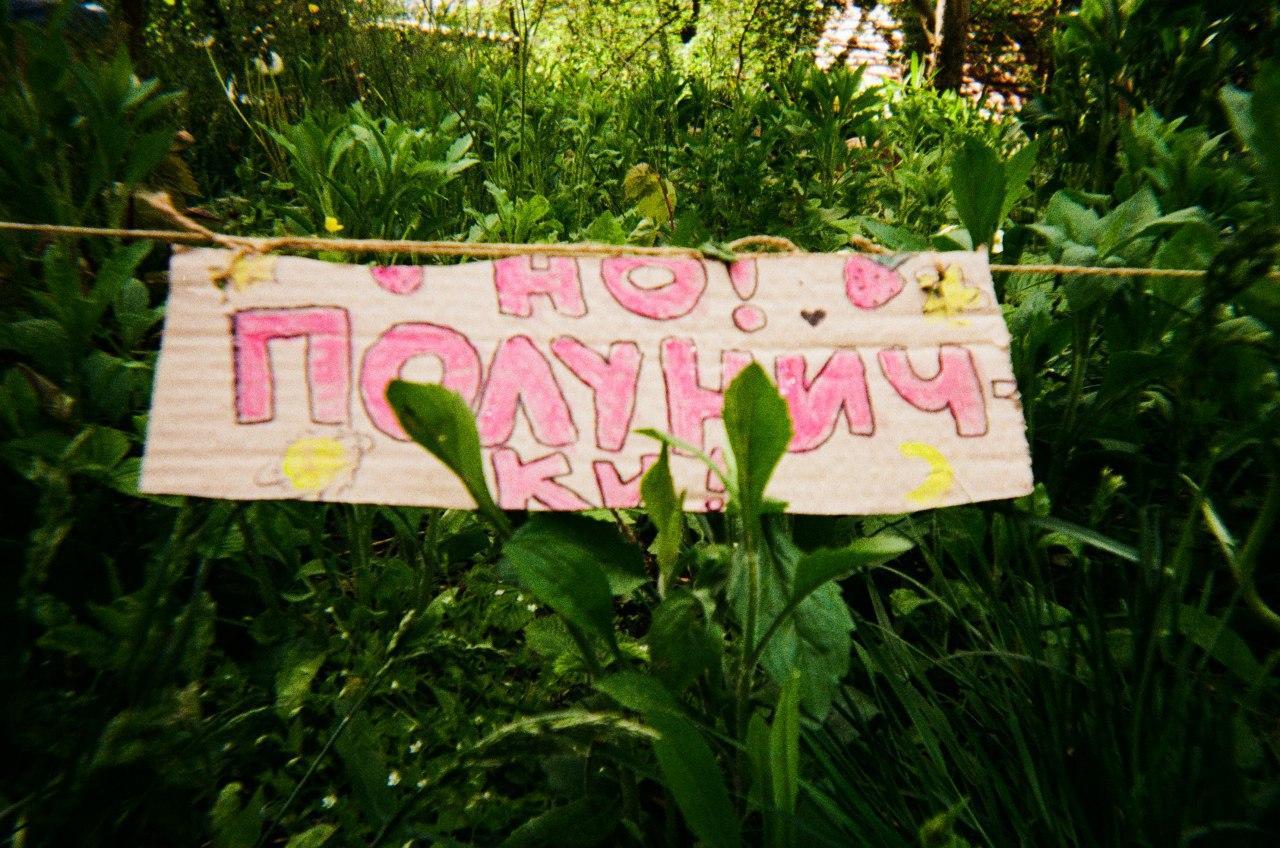 НО!
ПОЛУНИЧ-
КИ!